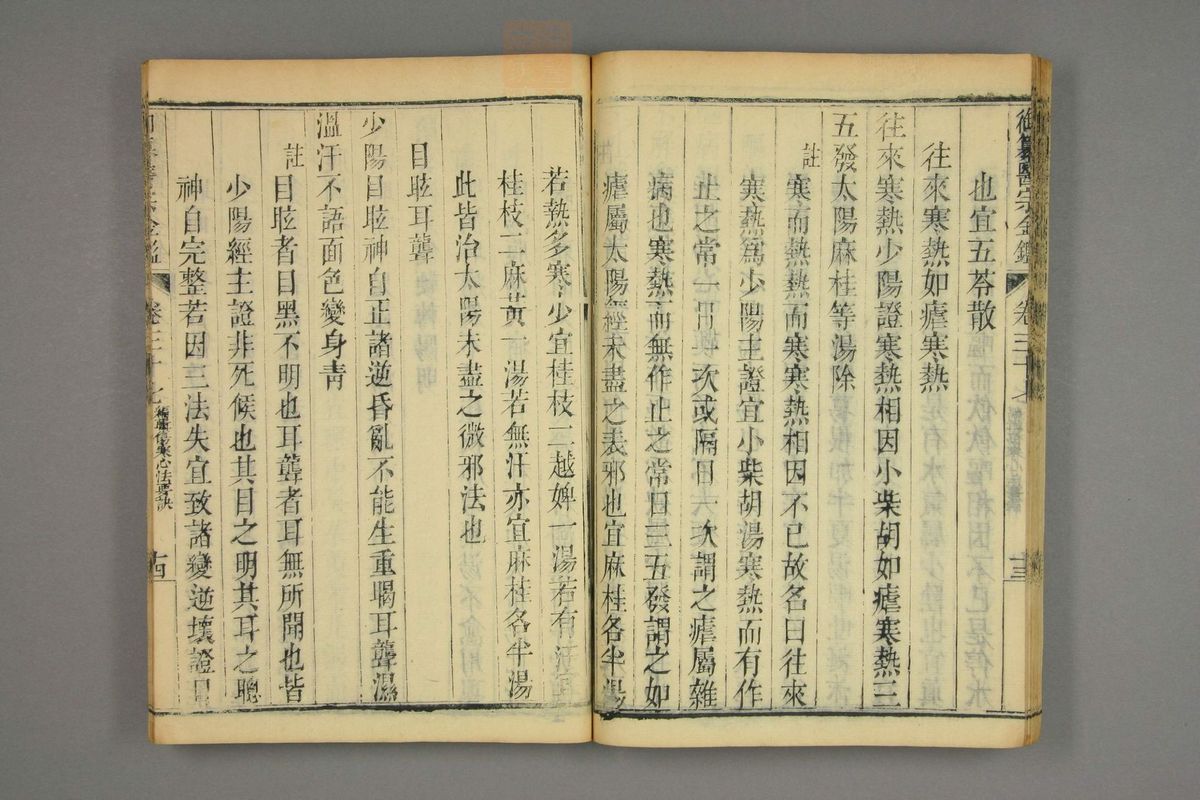 御纂醫宗金鑑 卷三十七 十三
也宜五苓散
往來寒熱如瘧寒熱
往來寒熱少陽證寒熱相因小柴胡如瘧寒熱三
五發太陽麻桂等湯除
註 寒而熱熱而寒寒熱相因不已故名曰往來
寒熱爲少陽主證宜小柴胡湯寒熱而有作
止之常一日一次或隔日一次謂之瘧屬雜
病也寒熱而無作止之常日三五發謂之如
瘧屬太陽經未盡之表邪也宜麻桂各半湯
若熱多寒少宜桂枝二越婢一湯若有汗宜
桂枝二麻黃一湯若無汗亦宜麻桂各半湯
此皆治太陽未盡之微邪法也
目眩耳聾
少陽目眩神自正諸逆昏亂不能生重暍耳聾濕
溫汗不語面色變身青
註 目眩者目黑不明也耳聾者耳無所聞也皆
少陽經主證非死候也其目之明其耳之聰
神自完整若因三法失宜致諸變逆壞證目
卷三十七 編輯傷寒心法要訣 十四